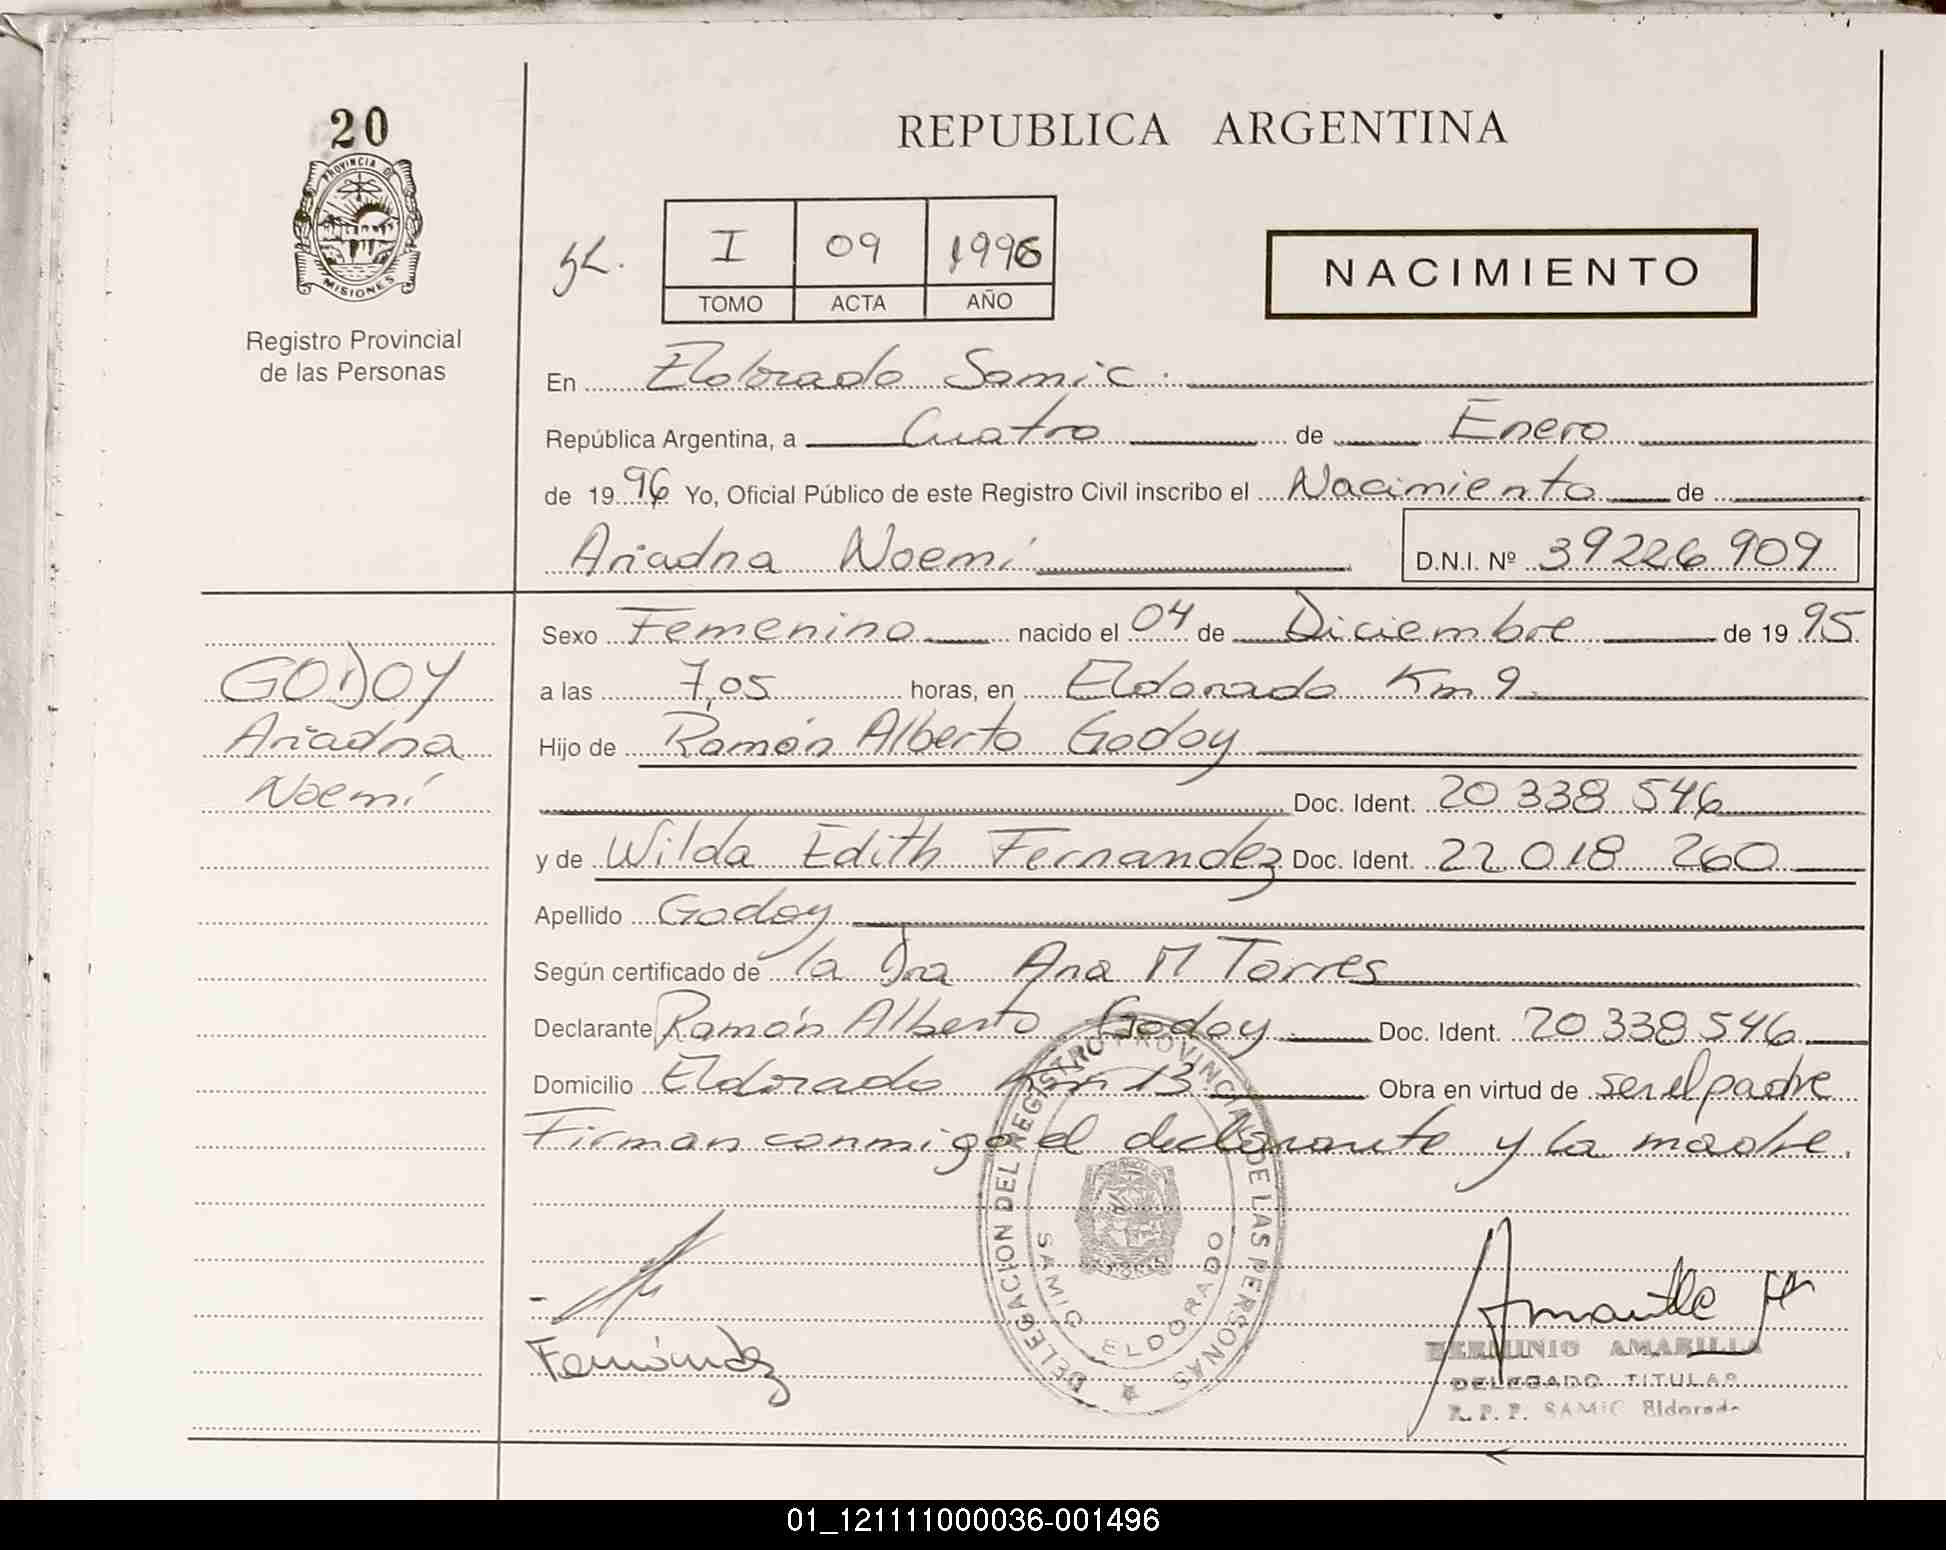 20
PROVINCIA DE
MISIONES
Registro Provincial
de las Personas
REPUBLICA ARGENTINA
I 09 1996
TOMO ACTA AÑO
NACIMIENTO
En Eldorado Samic.
República Argentina, a Cuatro de Enero
de 19 96 Yo, Oficial Público de este Registro Civil inscribo el Nacimiento de
Ariadna Noemí D.N.I. Nº 39226909
Sexo Femenino nacido el 04 de Diciembre de 19 95.
GODOY
Ariadna
Noemí
a las 7,05 horas, en Eldorado Km 9.
Hijo de Ramón Alberto Godoy
Doc. Ident. 20 338 546
y de Wilda Edith Fernandez Doc. Ident. 22 018 260
Apellido Godoy
Según certificado de la Dra Ana M Torres
Declarante Ramón Alberto Godoy. Doc. Ident. 20 338 546.
Domicilio Eldorado Km 13 Obra en virtud de ser el padre
Firman conmigo el declarante y la madre.
DELEGACION DEL REGISTRO PROVINCIAL DE LAS PERSONAS
SAMIC ELDORADO
Fernández
HERMINIO AMARILLA
DELEGADO TITULAR
R. P. P. SAMIC Eldorado
01_121111000036-001496